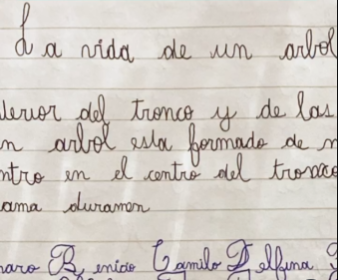 La vida de un arbol
terior del tronco y de las
n arbol esta formado de m
ntro en el centro del tronco
ama duramen
naro Benicio Camilo Delfina